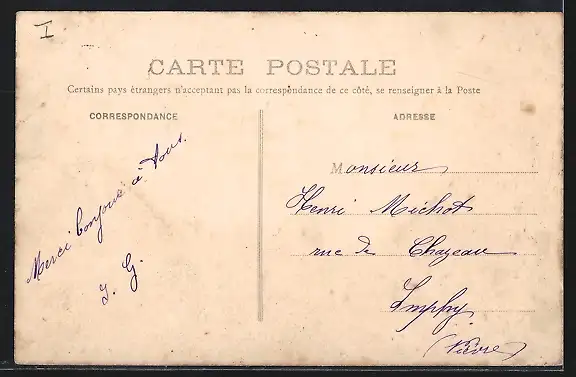 I
CARTE POSTALE
Certains pays étrangers n'acceptant pas la correspondance de ce côté, se renseigner à la Poste
CORRESPONDANCE
Merci bonjour à tous.
J. G.
ADRESSE
Monsieur
Henri Michot
rue de Chazeau
Imphy
(Nièvre)